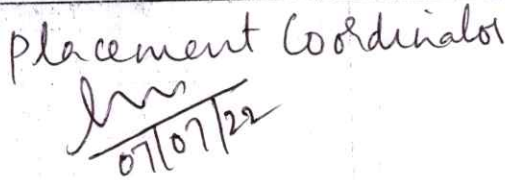 Placement Coordinator
07/07/22